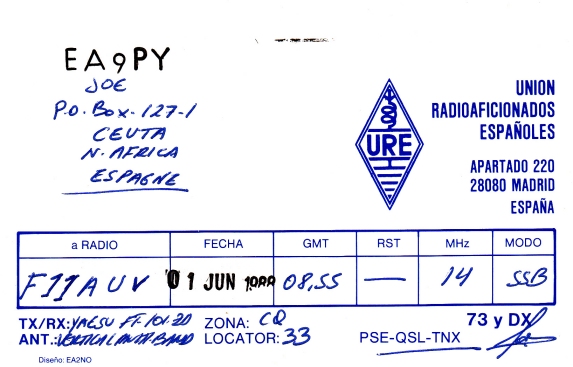 EA9PY
JOE
P.O. Box-127-1
CEUTA
N-AFRICA
ESPAGNE
URE
UNION
RADIOAFICIONADOS
ESPAÑOLES
APARTADO 220
28080 MADRID
ESPAÑA
a RADIO FECHA GMT RST MHz MODO
F11AUV 01 JUN 1988 08,55 — 14 SSB
TX/RX: YAESU FT-101-ZD ZONA: CQ 73 y DX
ANT.: VERTICAL LOCATOR: 33 PSE-QSL-TNX
Diseño: EA2NO